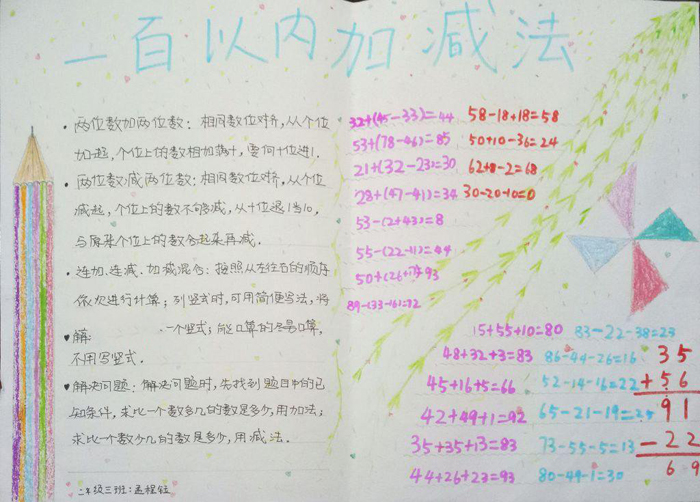 一百以内加减法
• 两位数加两位数：相同数位对齐，从个位
加起，个位上的数相加满十，要向十位进1.
• 两位数减两位数：相同数位对齐，从个位
减起，个位上的数不够减，从十位退1当10，
与原来个位上的数合起来再减．
• 连加、连减、加减混合：按照从左往右的顺序
依次进行计算；列竖式时，可用简便写法，将
一个竖式；能口算的尽量口算，
不用写竖式．
• 解决问题：解决问题时，先找到题目中的已
知条件，求比一个数多几的数是多少，用加法；
求比一个数少几的数是多少，用减法．
二年级三班：孟程
32+(45-33)=44
53+(78-46)=85
21+(32-23)=30
28+(47-41)=34
53-(2+43)=8
55-(22-11)=44
89-(33-16)=72
58-18+18=58
50+10-36=24
62+8-2=68
30-20-10=0
15+55+10=80
48+32+3=83
45+16+5=66
42+49+1=92
35+35+13=83
44+26+23=93
83-22-38=23
86-44-26=16
52-14-16=22
65-21-19=25
73-55-5=13
80-49-1=30
35
+56
91
-22
69